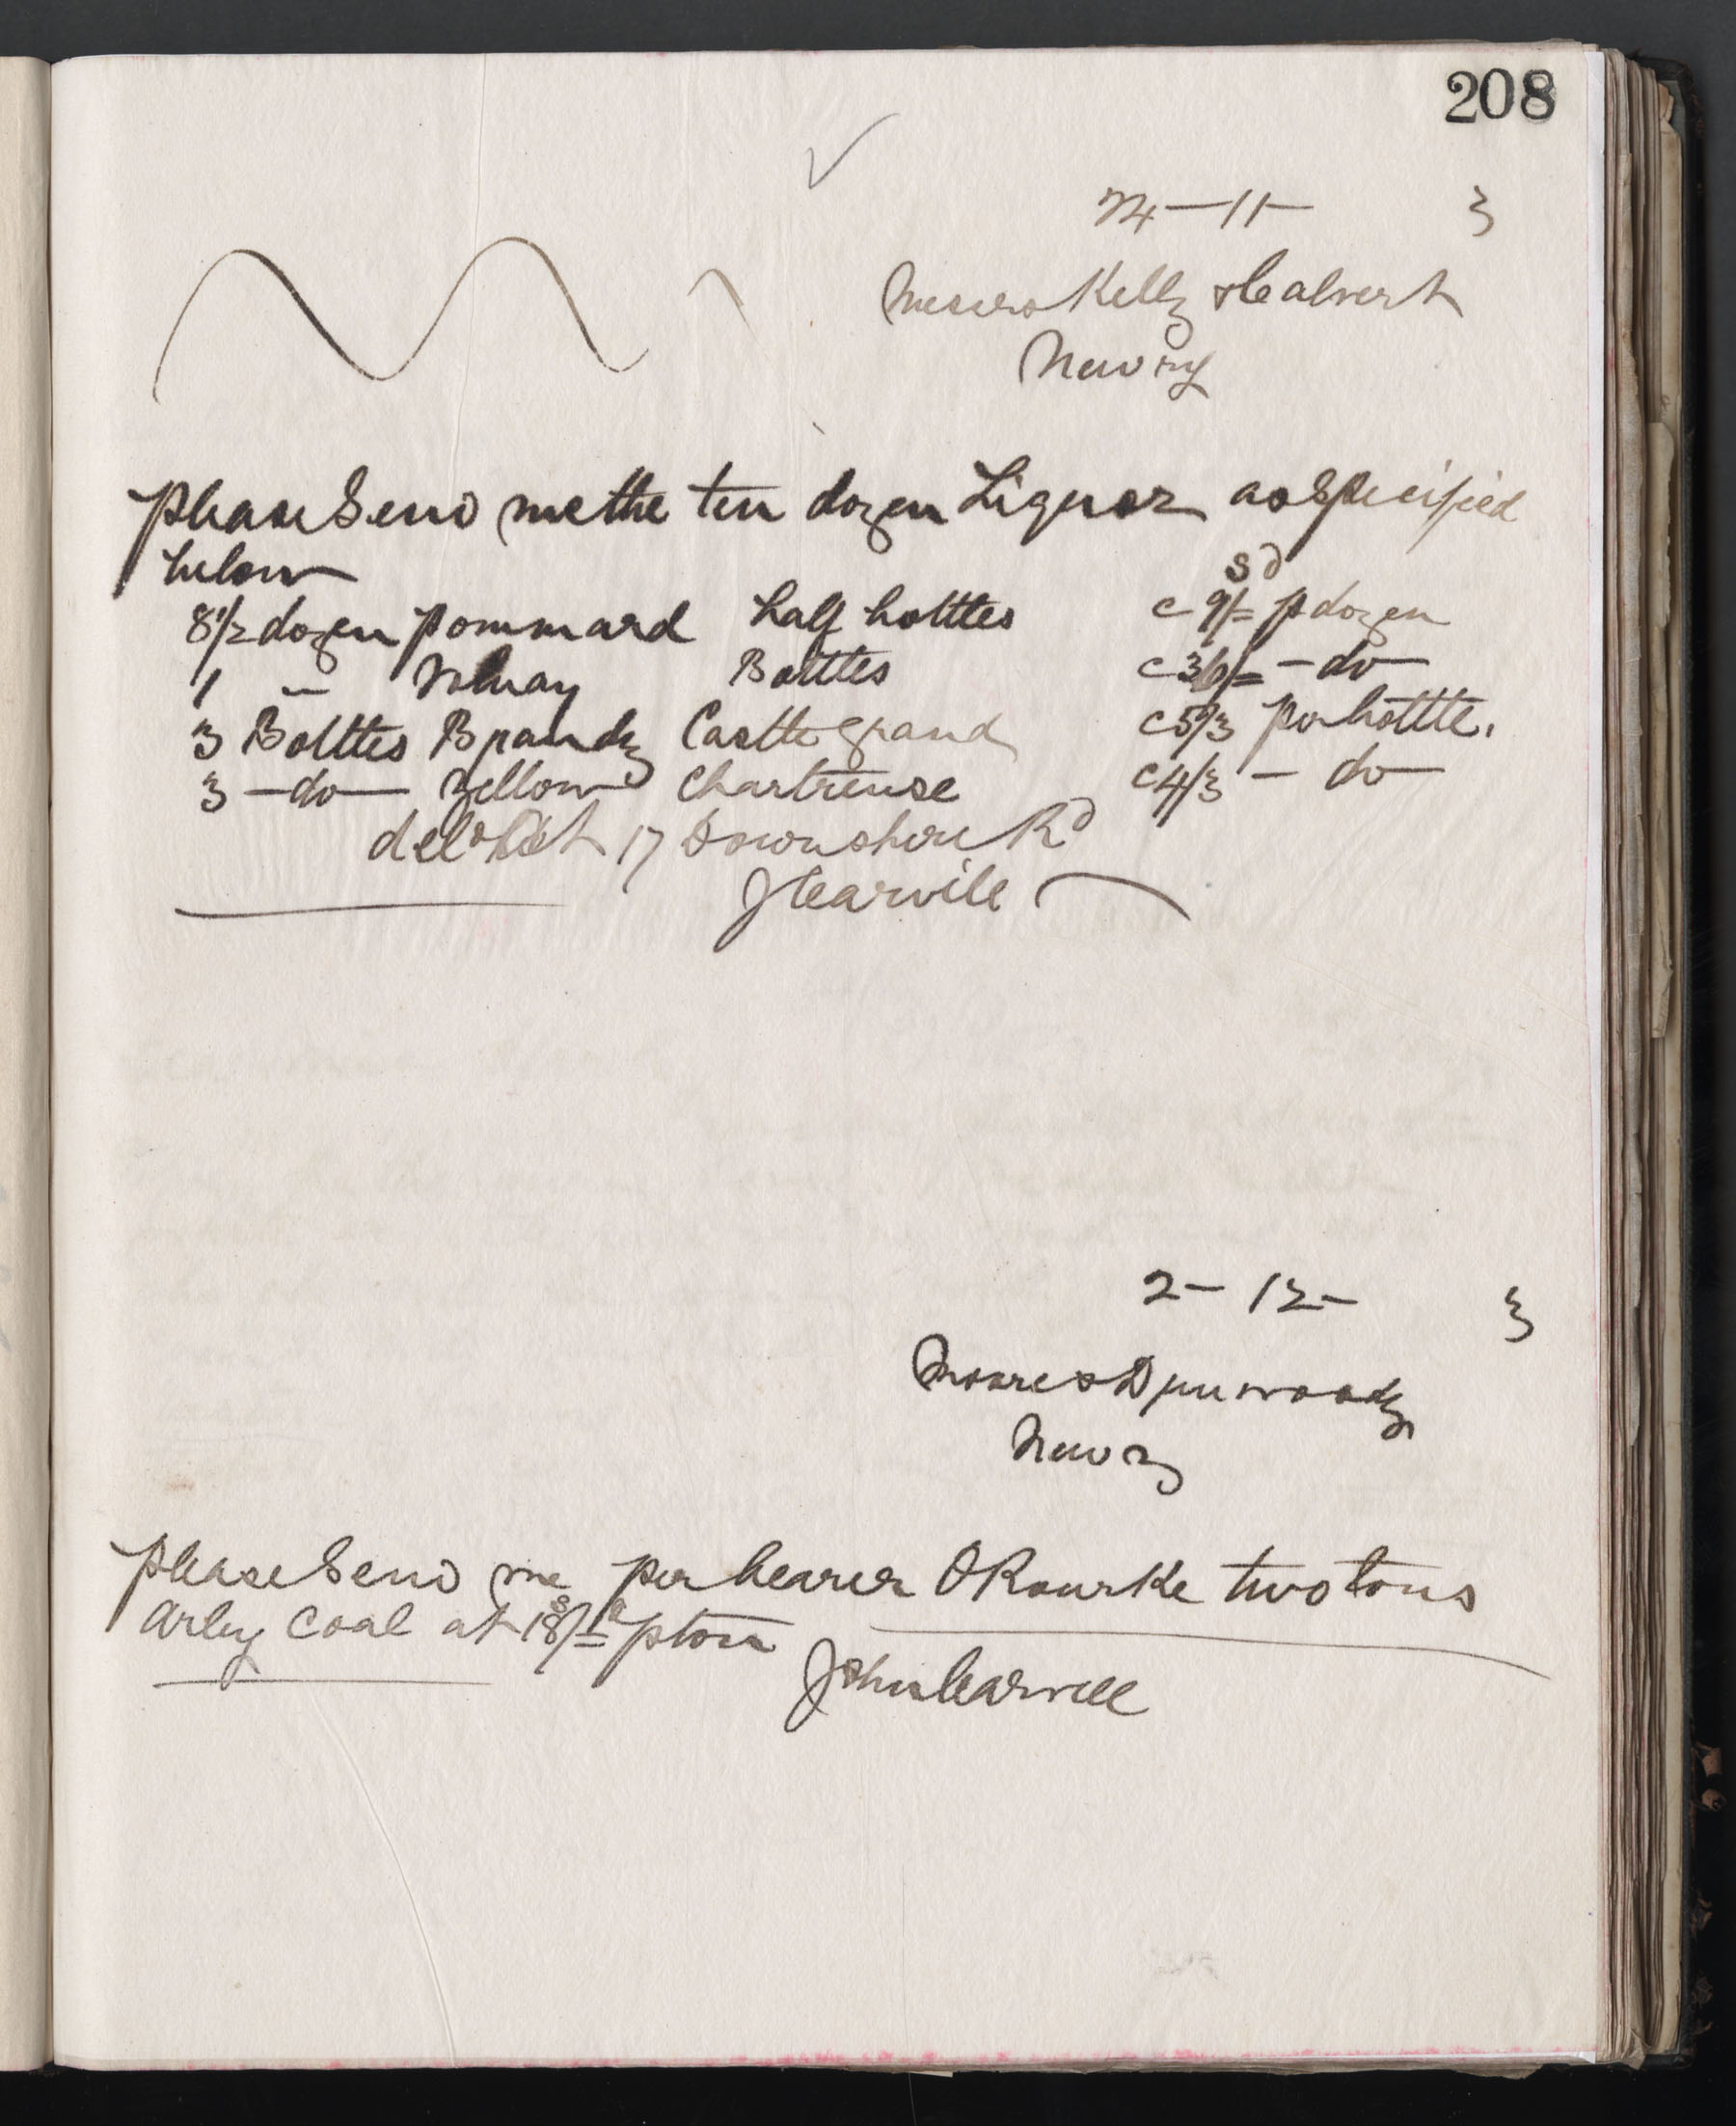 208
24-11- 3
Messrs Kelly & Calvert
Newry
Please Send me the ten dozen Liquor as Specified
below
s d
8 1/2 dozen Pommard half bottles c 9/= p dozen
1 " Volnay Bottles c 36/= - do
3 Bottles Brandy Castle Grand c 5/3 per bottle.
3 - do - Yellow Chartreuse c 4/3 - do
17 Downshire Rd
J Carvill
2 - 12 - 3
Moore & Dinwoody
Newry
Please Send me per bearer O Rourke two tons
Arley Coal at 18s/= p ton
John Carvill